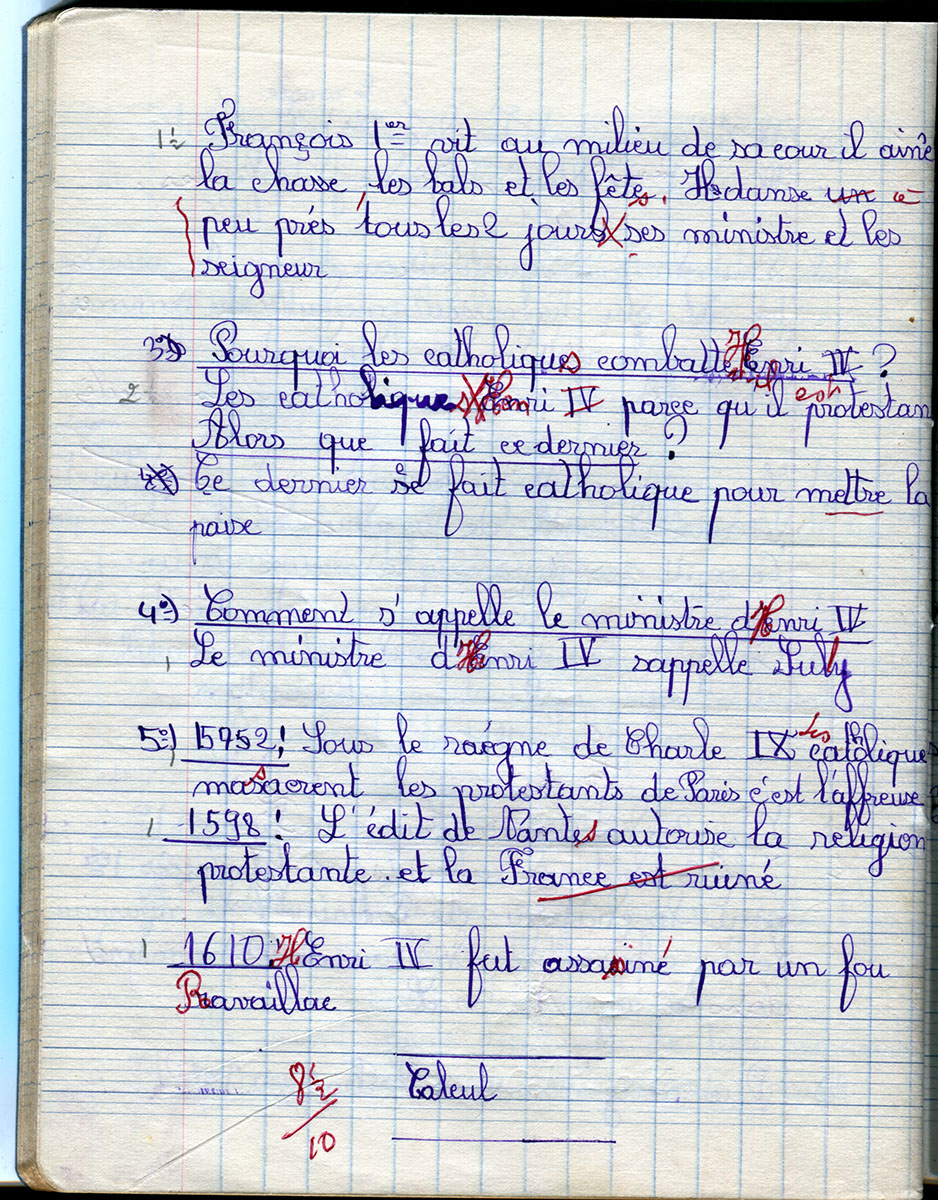 1½ François 1er vit au milieu de sa cour il aime
la chasse, les bals et les fêtes. Il danse un a
peu prés tous les 2 jours ses ministre et les
seigneur
3°) Pourquoi les catholiques combatte Henri IV ?
2 Les catholiques Henri IV parce qu'il est protestan
Alors que fait ce dernier ?
Ce dernier se fait catholique pour mettre la
paise
4°) Comment s'appelle le ministre d'Henri IV
1 Le ministre d'Henri IV sappelle Sully
5°) 15752! Sous le raégne de Charle IX les catholique
massacrent les protestants de Paris c'est l'affreuse
1 1598! L'édit de Nantes autorise la religion
protestante. et la France est ruiné
1 1610 Henri IV fut assassiné par un fou
Ravaillac
8½ Calcul
10